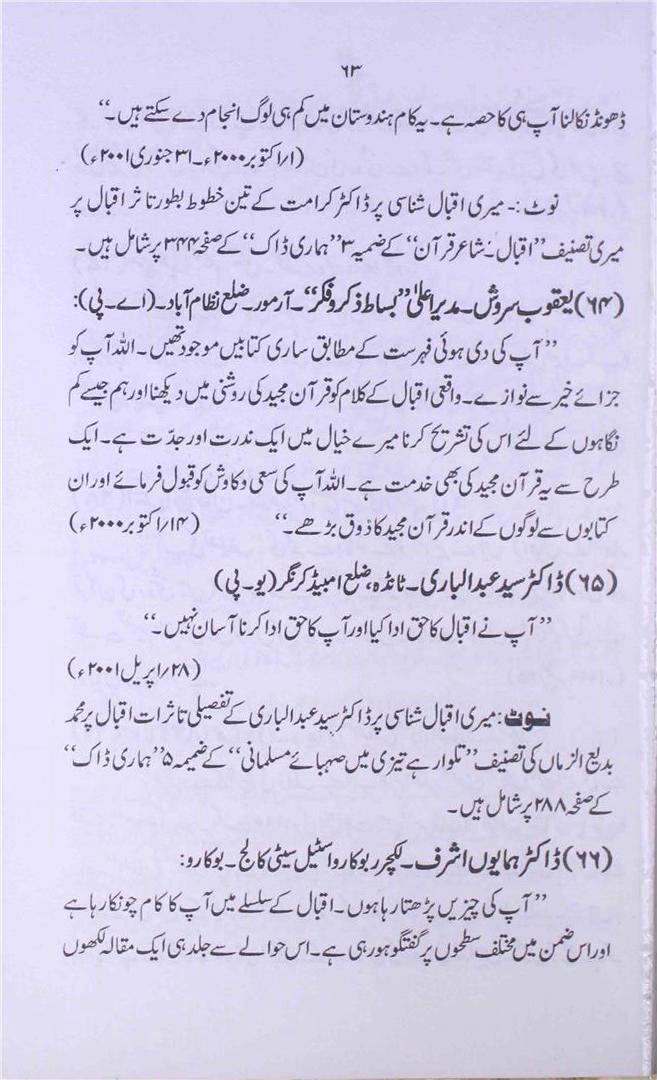 ۶۳
ڈھونڈ نکالنا آپ ہی کا حصہ ہے۔ یہ کام ہندوستان میں کم ہی لوگ انجام دے سکتے ہیں۔‘‘
(۱/ اکتوبر ۲۰۰۰ء۔ ۳۱ جنوری ۲۰۰۱ء)
نوٹ :۔ میری اقبال شناسی پر ڈاکٹر کرامت کے تین خطوط بطور تاثر اقبال پر
میری تصنیف ’’اقبال۔ شاعرِ قرآن‘‘ کے ضمیہ ۳ ’’ہماری ڈاک‘‘ کے صفحہ ۳۴۴ پر شامل ہیں۔
(۶۴) یعقوب سروش۔ مدیر اعلیٰ ’’بساط ذکر و فکر‘‘۔ آرمور۔ ضلع نظام آباد۔ (اے۔ پی):
’’آپ کی دی ہوئی فہرست کے مطابق ساری کتابیں موجود تھیں۔ اللہ آپ کو
جزائے خیر سے نوازے۔ واقعی اقبال کے کلام کو قرآن مجید کی روشنی میں دیکھنا اور ہم جیسے کم
نگاہوں کے لئے اس کی تشریح کرنا میرے خیال میں ایک ندرت اور جدّت ہے۔ ایک
طرح سے یہ قرآن مجید کی بھی خدمت ہے۔ اللہ آپ کی سعی و کاوش کو قبول فرمائے اور ان
کتابوں سے لوگوں کے اندر قرآن مجید کا ذوق بڑھے۔‘‘ (۱۴/ اکتوبر ۲۰۰۰ء)
(۶۵) ڈاکٹر سید عبدالباری۔ ٹانڈہ، ضلع امبیڈکرنگر (یو۔ پی)
’’آپ نے اقبال کا حق ادا کیا اور آپ کا حق ادا کرنا آسان نہیں۔‘‘
(۲۸/ اپریل ۲۰۰۱ء)
نوٹ : میری اقبال شناسی پر ڈاکٹر سید عبدالباری کے تفصیلی تاثرات اقبال پر محمد
بدیع الزماں کی تصنیف ’’تلوار ہے تیزی میں صہبائے مسلمانی‘‘ کے ضمیمہ ۵ ’’ہماری ڈاک‘‘
کے صفحہ ۲۸۸ پر شامل ہیں۔
(۶۶) ڈاکٹر ہمایوں اشرف۔ لکچرر بوکارو اسٹیل سیٹی کالج۔ بوکارو:
’’آپ کی چیزیں پڑھتا رہا ہوں۔ اقبال کے سلسلے میں آپ کا کام چونکا رہا ہے
اور اس ضمن میں مختلف سطحوں پر گفتگو ہو رہی ہے۔ اس حوالے سے جلد ہی ایک مقالہ لکھوں